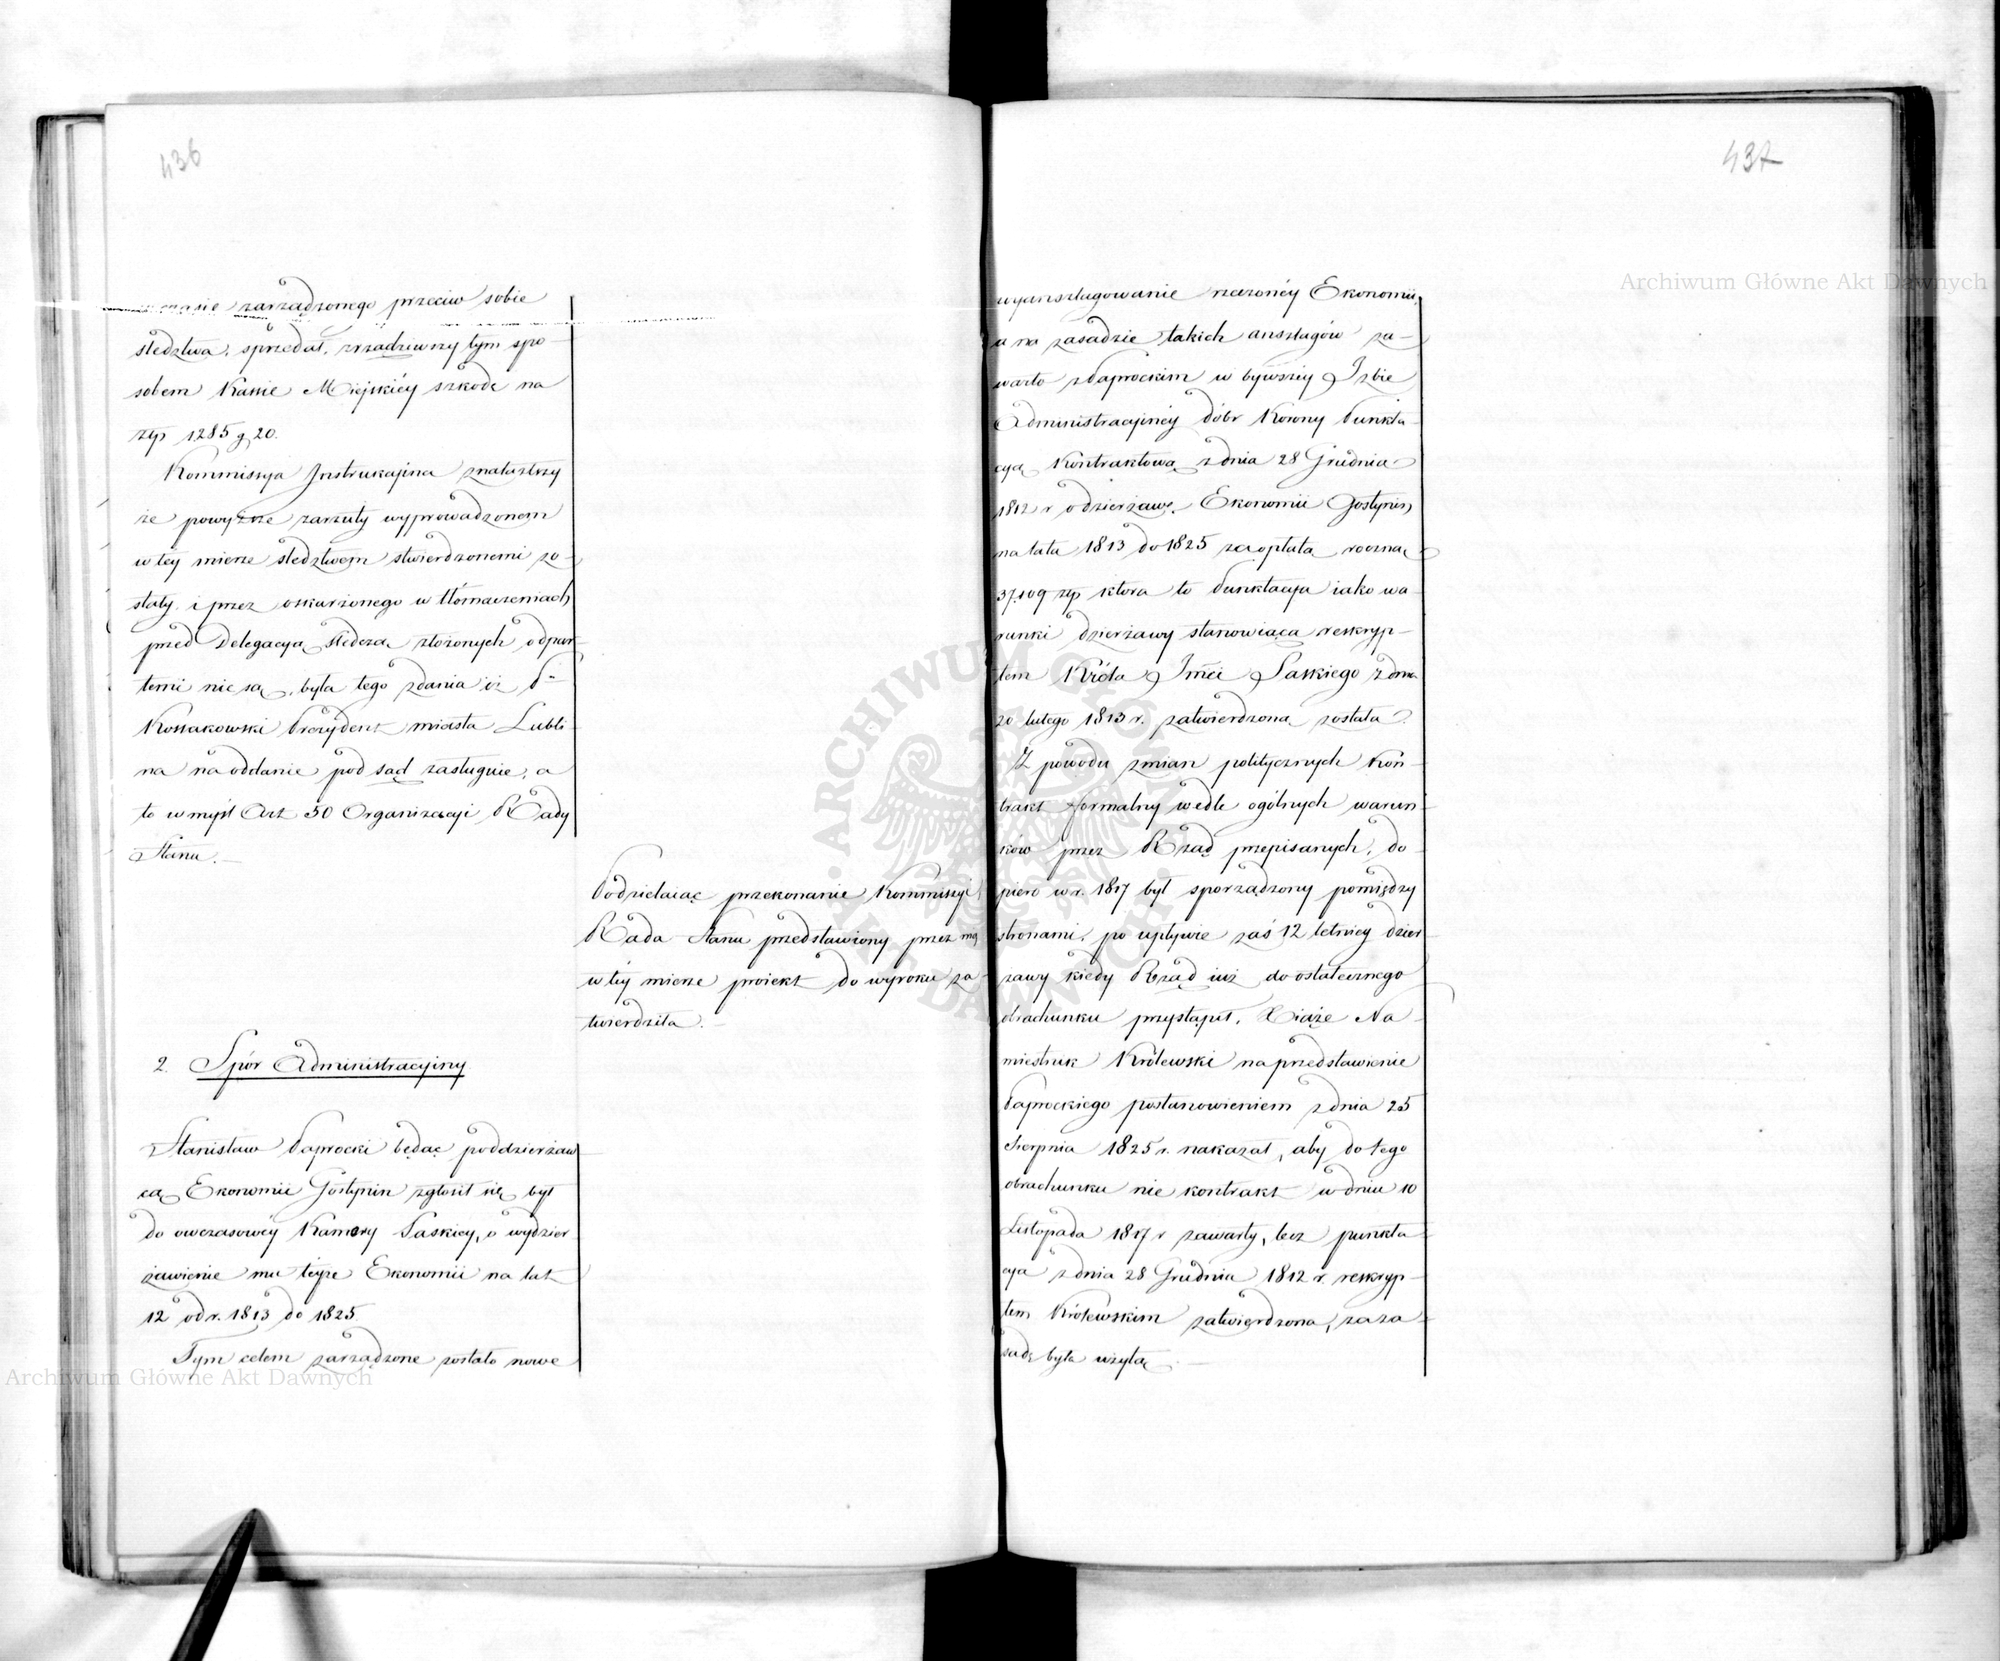 436
w czasie zarządzonego przeciw sobie
śledztwa, sprzedał, zrządziwszy tym spo-
sobem Kassie Mieyskiéy szkodę na
złp 1285 g 20.
Kommissya Instrukcyina znalazłszy
że powyższe zarzuty wyprowadzonem
w téy mierze śledztwem stwierdzonemi zo-
stały i przez oskarżonego w tłómaczeniach
przed Delegacyą śledczą złożonych odpar-
temi nie są, była tego zdania iż
Kossakowski Prezydent miasta Lubli-
na na oddanie pod sąd zasługuie, a
to w myśl Art 50 Organizacyi Rady
Stanu.
Podzielaiąc przekonanie Kommissyi
Rada Stanu przedstawiony przez nią
w téy mierze proiekt do wyroku za-
twierdziła.
2. Spór Administracyiny
Stanisław Paprocki będąc poddzierżaw-
cą Ekonomii Gostynin zgłosił się był
do owczasowéy Kamery Saskiey, o wydzier-
żawienie mu teyże Ekonomii na lat
12 od r. 1813 do 1825
Tym celem zarządzone zostało nowe
437
wyanszlagowanie rzeczonéy Ekonomii,
a na zasadzie takich anszlagów za-
warto z Paprockim w bywszéy Izbie
Administracyinéy dóbr Korony Punkta-
cyą Kontraktową z dnia 28 Grudnia
1812 r o dzierżawę Ekonomii Gostynin
na lata 1813 do 1825 za opłatą roczną
37,109 złp która to Punktacya iako wa-
runki dzierżawy stanowiąca reskryp-
tem Króla Jmci Saskiego z dnia
20 lutego 1813 r. zatwierdzoną została.
Z powodu zmian politycznych Kon-
trakt formalny wedle ogólnych warun-
ków przez Rząd przepisanych, do-
piero w r. 1817 był sporządzony pomiędzy
stronami, po upływie zaś 12 letniey dzier-
żawy kiedy Rząd iuż do ostatecznego
obrachunku przystąpił, Xiąże Na-
miestnik Królewski na przedstawienie
Paprockiego postanowieniem z dnia 25
Sierpnia 1825 r. nakazał, aby do tego
obrachunku nie kontrakt w dniu 10
Listopada 1817 r zawarty, lecz punkta-
cya z dnia 28 Grudnia 1812 r. reskryp-
tem Królewskim zatwierdzona, za za-
sadę była użytą.
Archiwum Główne Akt Dawnych
Archiwum Główne Akt Dawnych